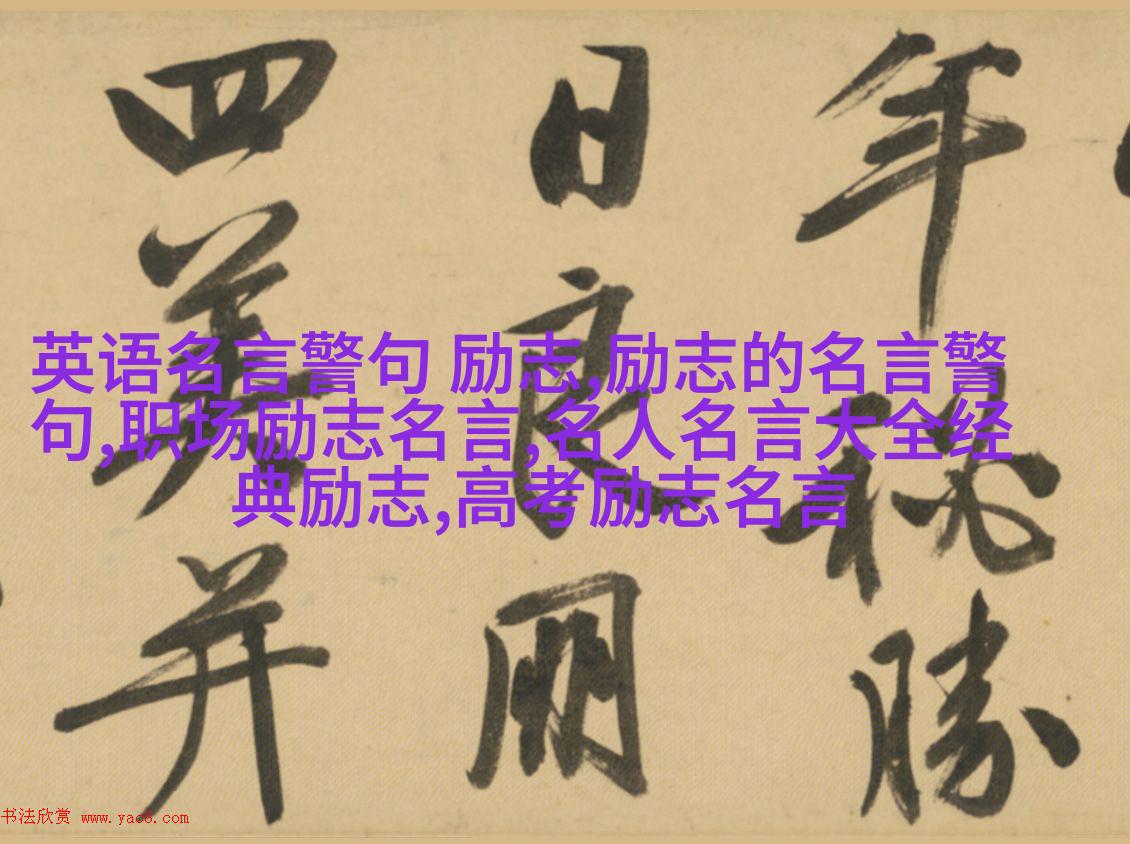 年 勝
日良朋
四美并
英语名言警句 励志,励志的名言警
句,职场励志名言,名人名言大全经
典励志,高考励志名言
书法欣赏 www.yac8.com